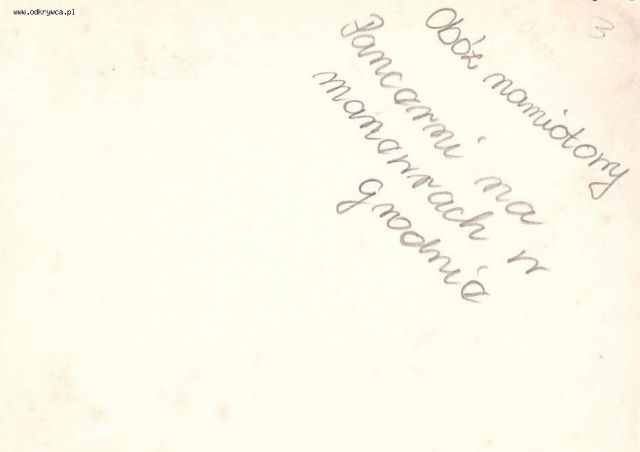 www.odkrywca.pl
3
Obóz namiotowy
Pancerni na
manewrach w
grodnie